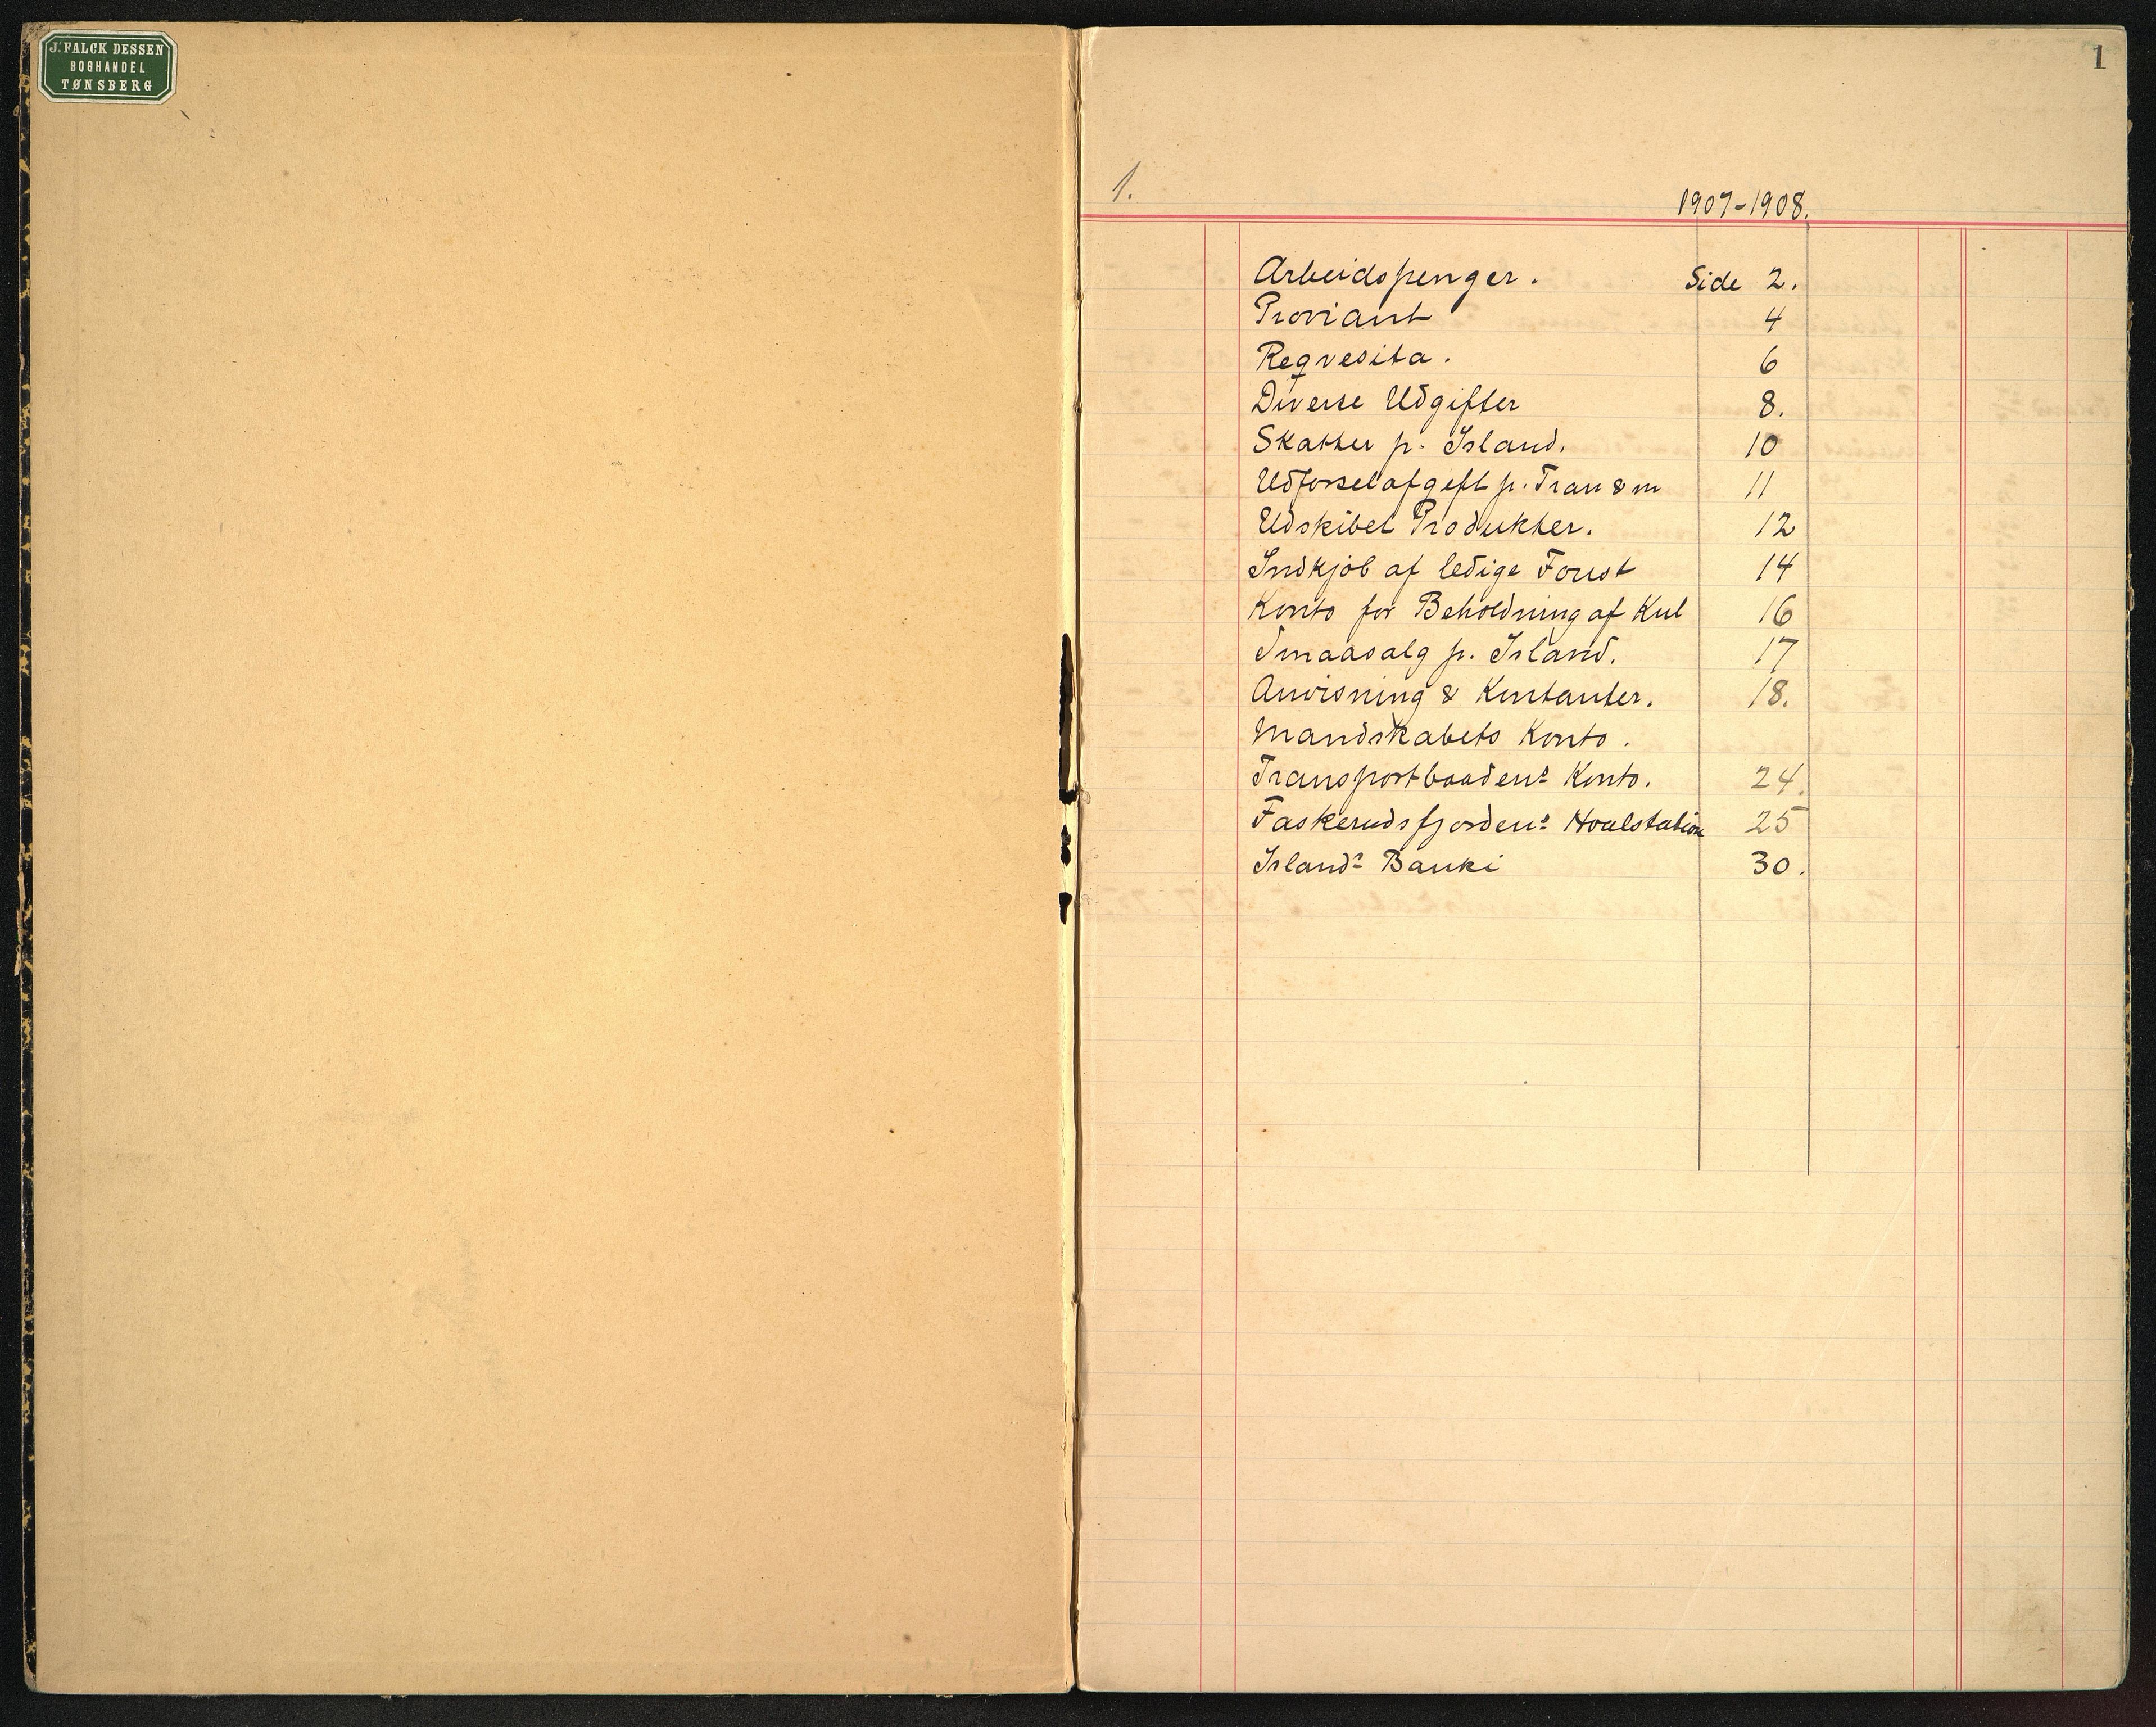 J. FALCK DESSEN
BOGHANDEL
TØNSBERG
1
1.
1907-1908.
Arbeidspenger. Side 2.
Proviant 4
Reqvesita. 6
Diverse Udgifter 8.
Skatter p. Island. 10
Udførselafgift p. Tran & m 11
Udskibet Produkter. 12
Indkjøb af ledige Foust 14
Konto for Beholdning af Kul 16
Smaasalg p. Island. 17
Anvisning & Kontanter. 18.
Mandskabets Konto.
Transportbaadens Konto. 24.
Faskerudsfjordens Hvalstation 25
Islands Banki 30.